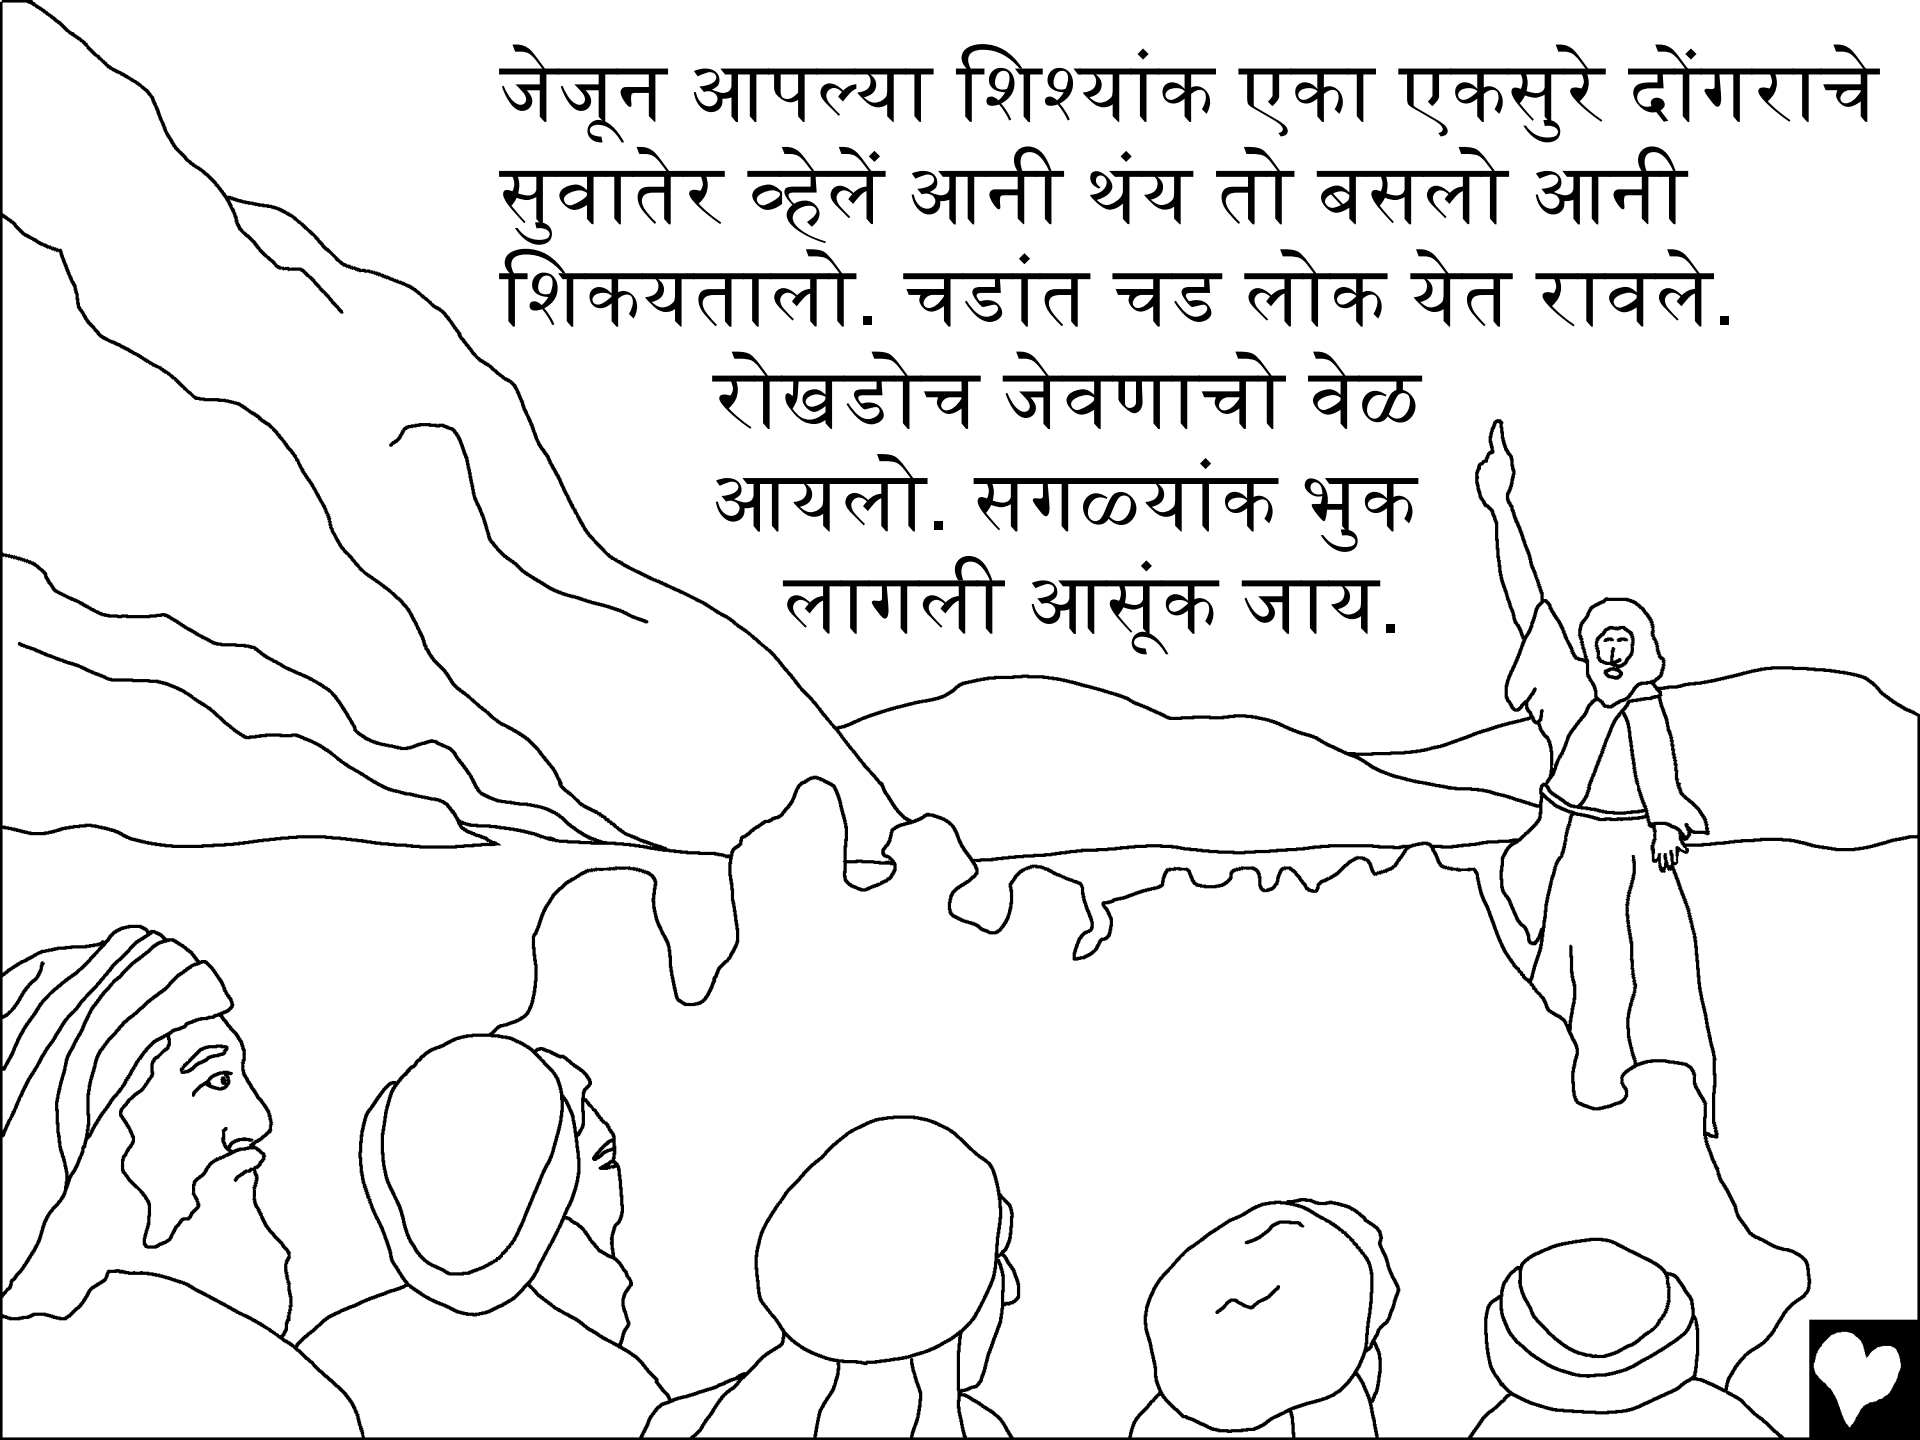 जेजून आपल्या शिश्यांक एका एकसुरे दोंगराचे
सुवातेर व्हेलें आनी थंय तो बसलो आनी
शिकयतालो. चडांत चड लोक येत रावले.
रोखडोच जेवणाचो वेळ
आयलो. सगळ्यांक भुक
लागली आसूंक जाय.